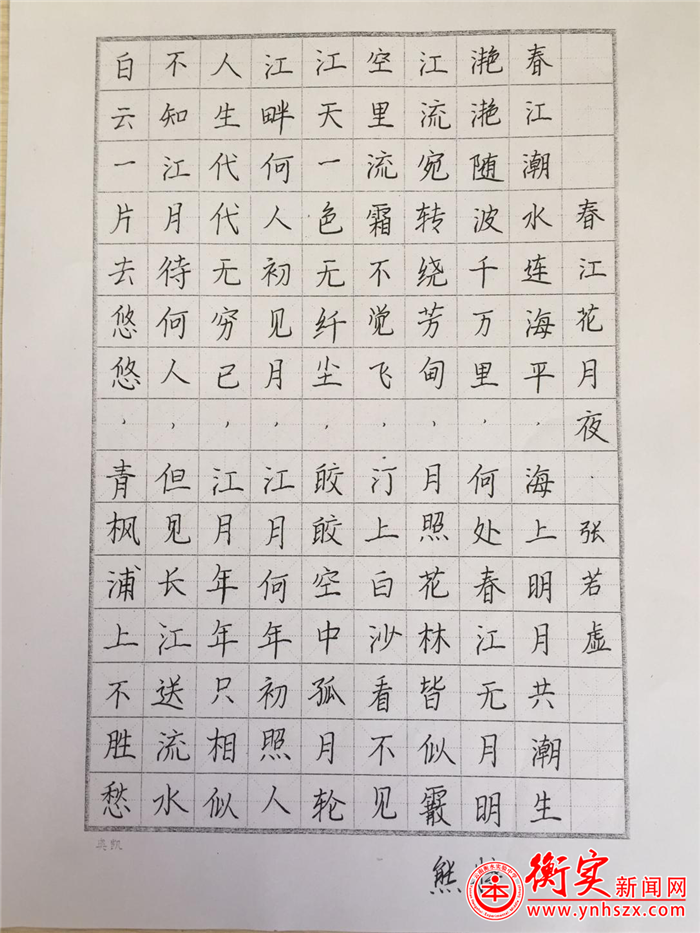 春江花月夜·张若虚
春江潮水连海平，海上明月共潮生
滟滟随波千万里，何处春江无月明
江流宛转绕芳甸，月照花林皆似霰
空里流霜不觉飞，汀上白沙看不见
江天一色无纤尘，皎皎空中孤月轮
江畔何人初见月，江月何年初照人
人生代代无穷已，江月年年只相似
不知江月待何人，但见长江送流水
白云一片去悠悠，青枫浦上不胜愁
熊
衡实新闻网
www.ynhszx.com